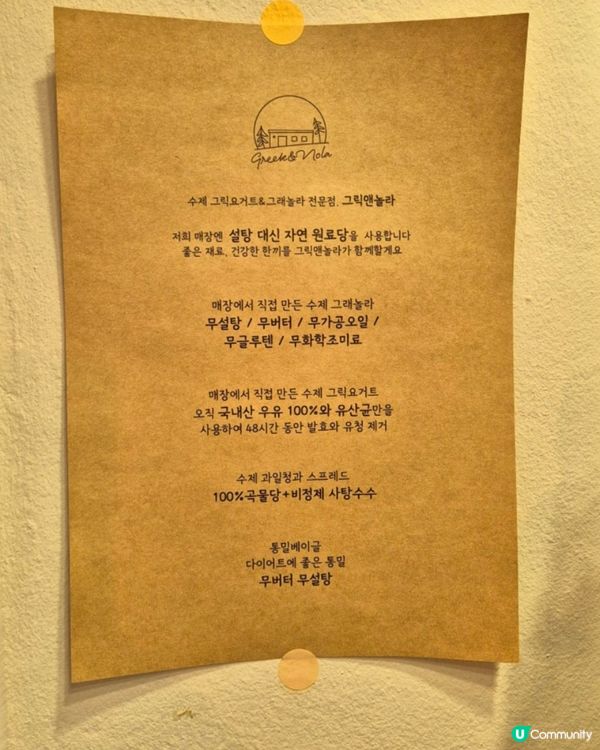 Greek&Nola
수제 그릭요거트&그래놀라 전문점. 그릭앤놀라
저희 매장엔 설탕 대신 자연 원료당을 사용합니다
좋은 재료, 건강한 한끼를 그릭앤놀라가 함께할게요
매장에서 직접 만든 수제 그래놀라
무설탕 / 무버터 / 무가공오일 /
무글루텐 / 무화학조미료
매장에서 직접 만든 수제 그릭요거트
오직 국내산 우유 100%와 유산균만을
사용하여 48시간 동안 발효와 유청 제거
수제 과일청과 스프레드
100%곡물당+비정제 사탕수수
통밀베이글
다이어트에 좋은 통밀
무버터 무설탕
U Community